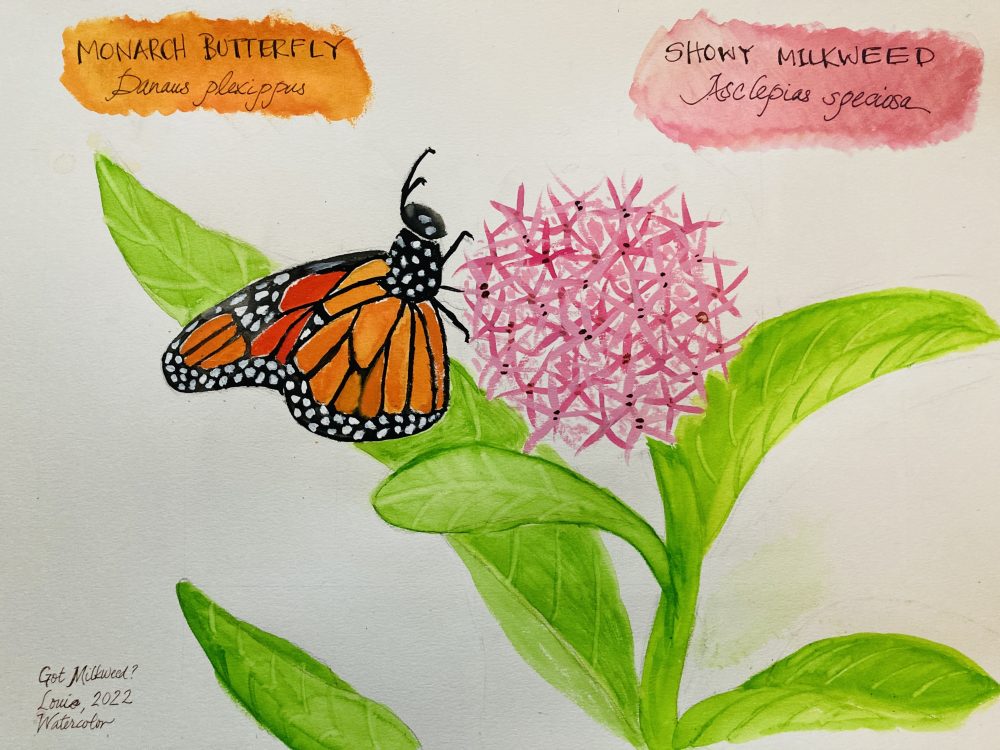 MONARCH BUTTERFLY
Danaus plexippus
SHOWY MILKWEED
Asclepias speciosa
Got Milkweed?
Louie, 2022
Watercolor